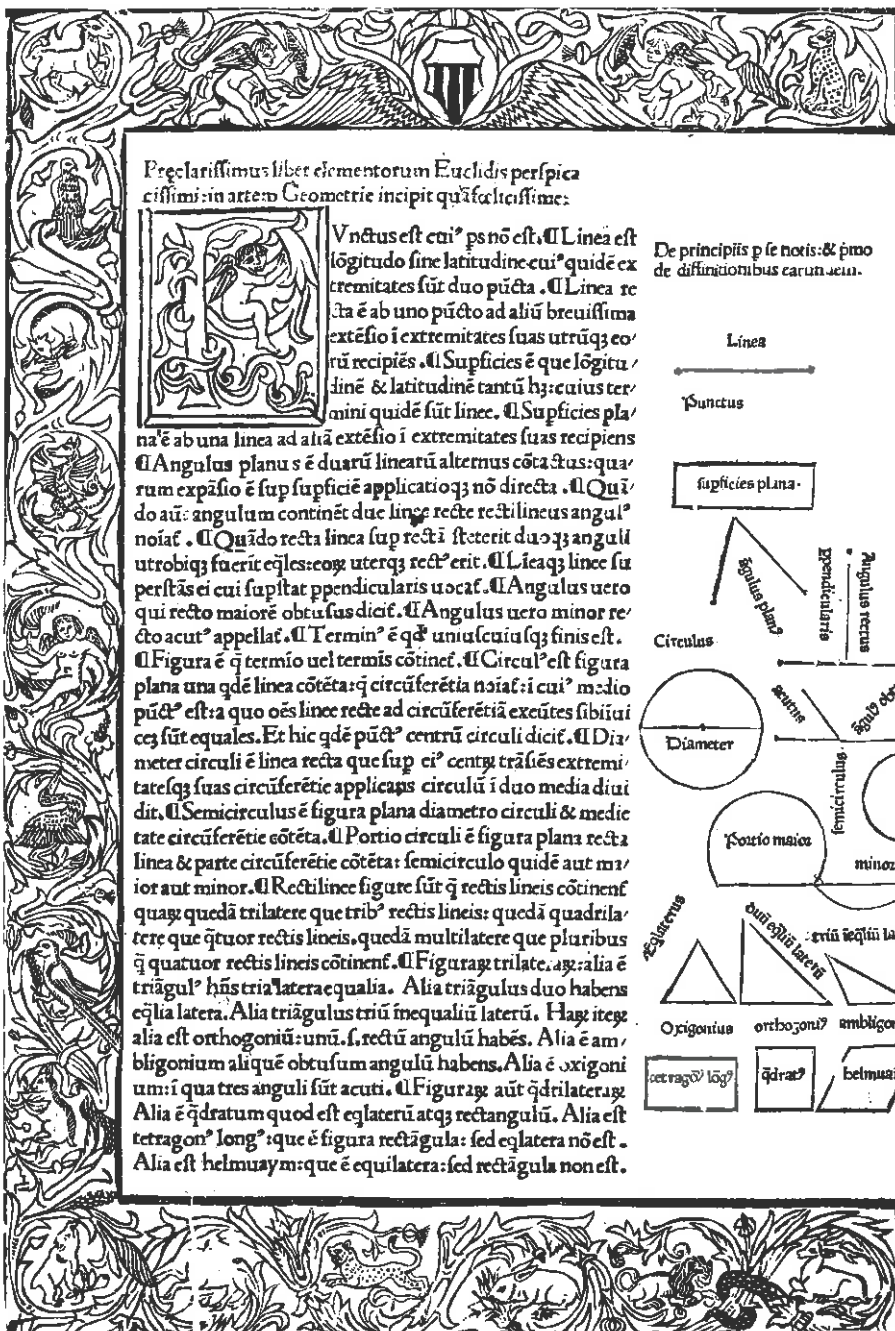 Pręclarissimus liber elementorum Euclidis perspica
cissimi: in artem Geometrie incipit quãfoelicissime:
PVnctus est cuiꝰ ps nõ est. ¶Linea est
lõgitudo sine latitudine cuiꝰ quidẽ ex
tremitates sũt duo pũcta. ¶Linea re
cta ẽ ab uno pũcto ad aliũ breuissima
extẽsio i extremitates suas utrũqꝫ eo⸗
rũ recipiẽs. ¶Supficies ẽ que lõgitu⸗
dinẽ & latitudinẽ tantũ hꝫ: cuius ter⸗
mini quidẽ sũt linee. ¶Supficies pla⸗
na ẽ ab una linea ad aliã extẽsio i extremitates suas recipiens
¶Angulus planus ẽ duarũ linearũ alternus cõtactus: qua⸗
rum expãsio ẽ sup supficiẽ applicatioqꝫ nõ directa. ¶Quã⸗
do aũt angulum continẽt due linee recte rectilineus angulꝰ
noiat̃. ¶Quãdo recta linea sup rectã steterit duoqꝫ anguli
utrobiqꝫ fuerit eq̃les: eoꝝ uterqꝫ rectꝰ erit. ¶Lieaqꝫ linee su
perstãs ei cui supstat ppendicularis uocat̃. ¶Angulus uero
qui recto maiorẽ obtusus dicit̃. ¶Angulus uero minor re⸗
cto acutꝰ appellat̃. ¶Terminꝰ ẽ qd̃ uniuscuiusqꝫ finis est.
¶Figura ẽ q̃ termĩo uel termĩs cõtinet̃. ¶Circulꝰ est figura
plana una qdẽ linea cõtẽta: q̃ circũferẽtia noiat̃: i cuiꝰ medio
pũctꝰ est: a quo oẽs linee recte ad circũferẽtiã exeũtes sibiiui
ceꝫ sũt equales. Et hic qdẽ pũctꝰ centrũ circuli dicit̃. ¶Dia⸗
meter circuli ẽ linea recta que sup eiꝰ centꝝ trãsiẽs extremi⸗
tatesqꝫ suas circũferẽtie applicans circulũ i duo media diui
dit. ¶Semicirculus ẽ figura plana diametro circuli & medie
tate circũferẽtie cõtẽta. ¶Portio circuli ẽ figura plana recta
linea & parte circũferẽtie cõtẽta: semicirculo quidẽ aut ma⸗
ior aut minor. ¶Rectilinee figure sũt q̃ rectis lineis cõtinent̃
quaꝝ quedã trilatere que tribꝰ rectis lineis: quedã quadrila⸗
tere que q̃tuor rectis lineis. quedã multilatere que pluribus
q̃ quatuor rectis lineis cõtinent̃. ¶Figuraꝝ trilateraꝝ: alia ẽ
triãgulꝰ hñs tria latera equalia. Alia triãgulus duo habens
eq̃lia latera. Alia triãgulus triũ inequaliũ laterũ. Haꝝ iteꝝ
alia est orthogoniũ: unũ .s. rectũ angulũ habẽs. Alia ẽ am⸗
bligonium aliquẽ obtusum angulũ habens. Alia ẽ oxigoni
um: i qua tres anguli sũt acuti. ¶Figuraꝝ aũt q̃drilateraꝝ
Alia ẽ q̃dratum quod est eqlaterũ atqꝫ rectangulũ. Alia est
tetragonꝰ longꝰ: que ẽ figura rectãgula: sed eqlatera nõ est.
Alia est helmuaym: que ẽ equilatera: sed rectãgula non est.
De principiis p se notis: & pmo
de diffinitionibus earundem.
Linea
Punctus
supficies plana.
ãgulus planꝰ
ppendicularis
Angulus rectus
Circulus
Diameter
acutus
ãgulꝰ ob
semicirculus.
Portio maior
minor
Eqlaterus
duũ eq̃liũ laterũ
triũ ieq̃liũ la
Oxigonius
orthogoniꝰ
ambligon
tetragõꝰ lõgꝰ
q̃dratꝰ
helmuai